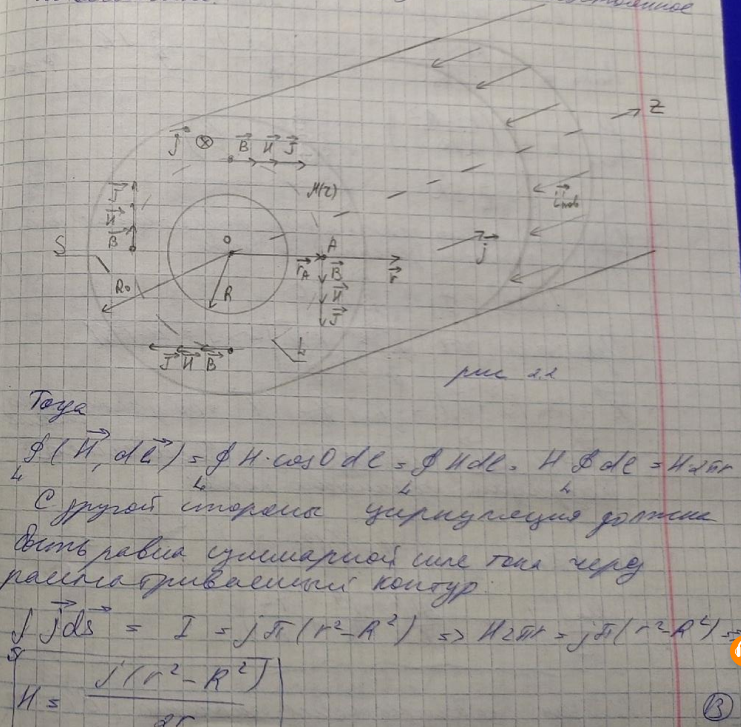 Z
j⃗ ⊗ B⃗ H⃗ J⃗
μ(r)
J⃗
H⃗
B⃗
i⃗пов
S
O
A
r⃗A
B⃗
r⃗
j⃗
R₀
R
H⃗
J⃗
J⃗ H⃗ B⃗
L
рис 2.2
Тогда
∮L(H⃗, dl⃗) = ∮L H·cos0 dl = ∮L Hdl = H ∮L dl = H2πr
С другой стороны циркуляция должна
быть равна суммарной силе тока через
рассматриваемый контур:
∫S j⃗ds⃗ = I = jπ(r²-R²) => H2πr = jπ(r²-R²) =>
H = j(r²-R²)/2r
③